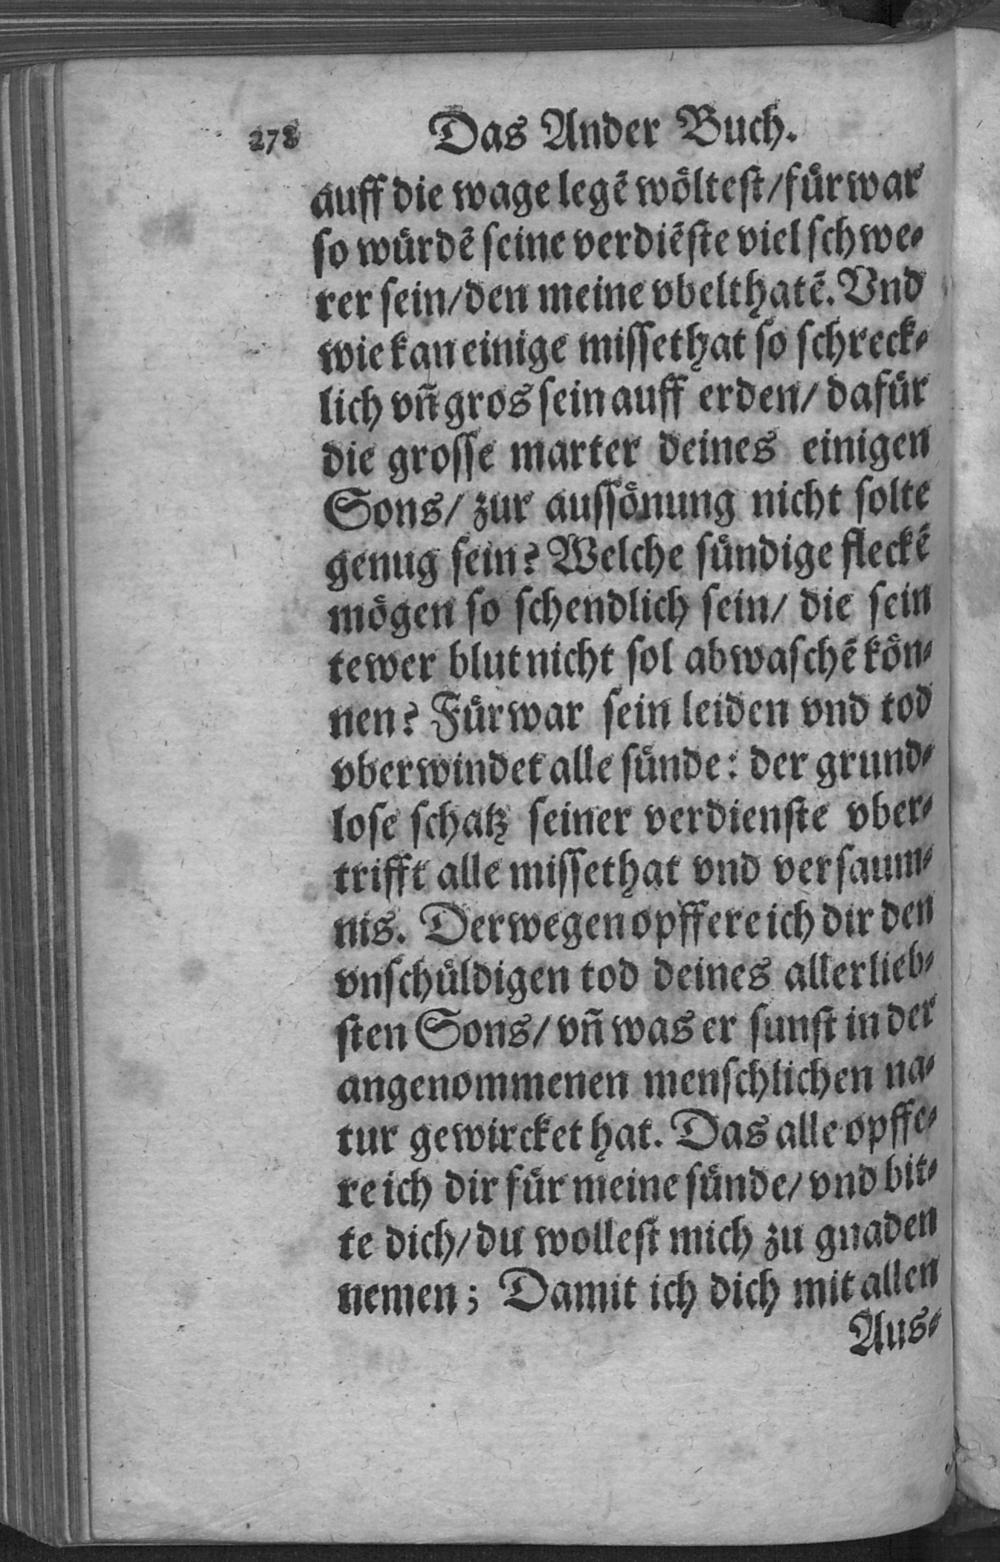 278 Das Ander Buch.
auff die wage legẽ wöltest/ fürwar
so würdẽ seine verdiẽste viel schwe-
rer sein/ den meine vbelthatẽ. Vnd
wie kan einige missethat so schreck-
lich vñ gros sein auff erden/ dafür
die grosse marter deines einigen
Sons/ zur aussönung nicht solte
genug sein? Welche sündige fleckẽ
mögen so schendlich sein/ die sein
tewer blut nicht sol abwaschẽ kön-
nen? Fürwar sein leiden vnd tod
vberwindet alle sünde: der grund-
lose schatz seiner verdienste vber-
trifft alle missethat vnd versaum-
nis. Derwegen opffere ich dir den
vnschüldigen tod deines allerlieb-
sten Sons/ vñ was er sunst in der
angenommenen menschlichen na-
tur gewircket hat. Das alle opffe-
re ich dir für meine sünde/ vnd bit-
te dich/ du wollest mich zu gnaden
nemen; Damit ich dich mit allen
Aus-